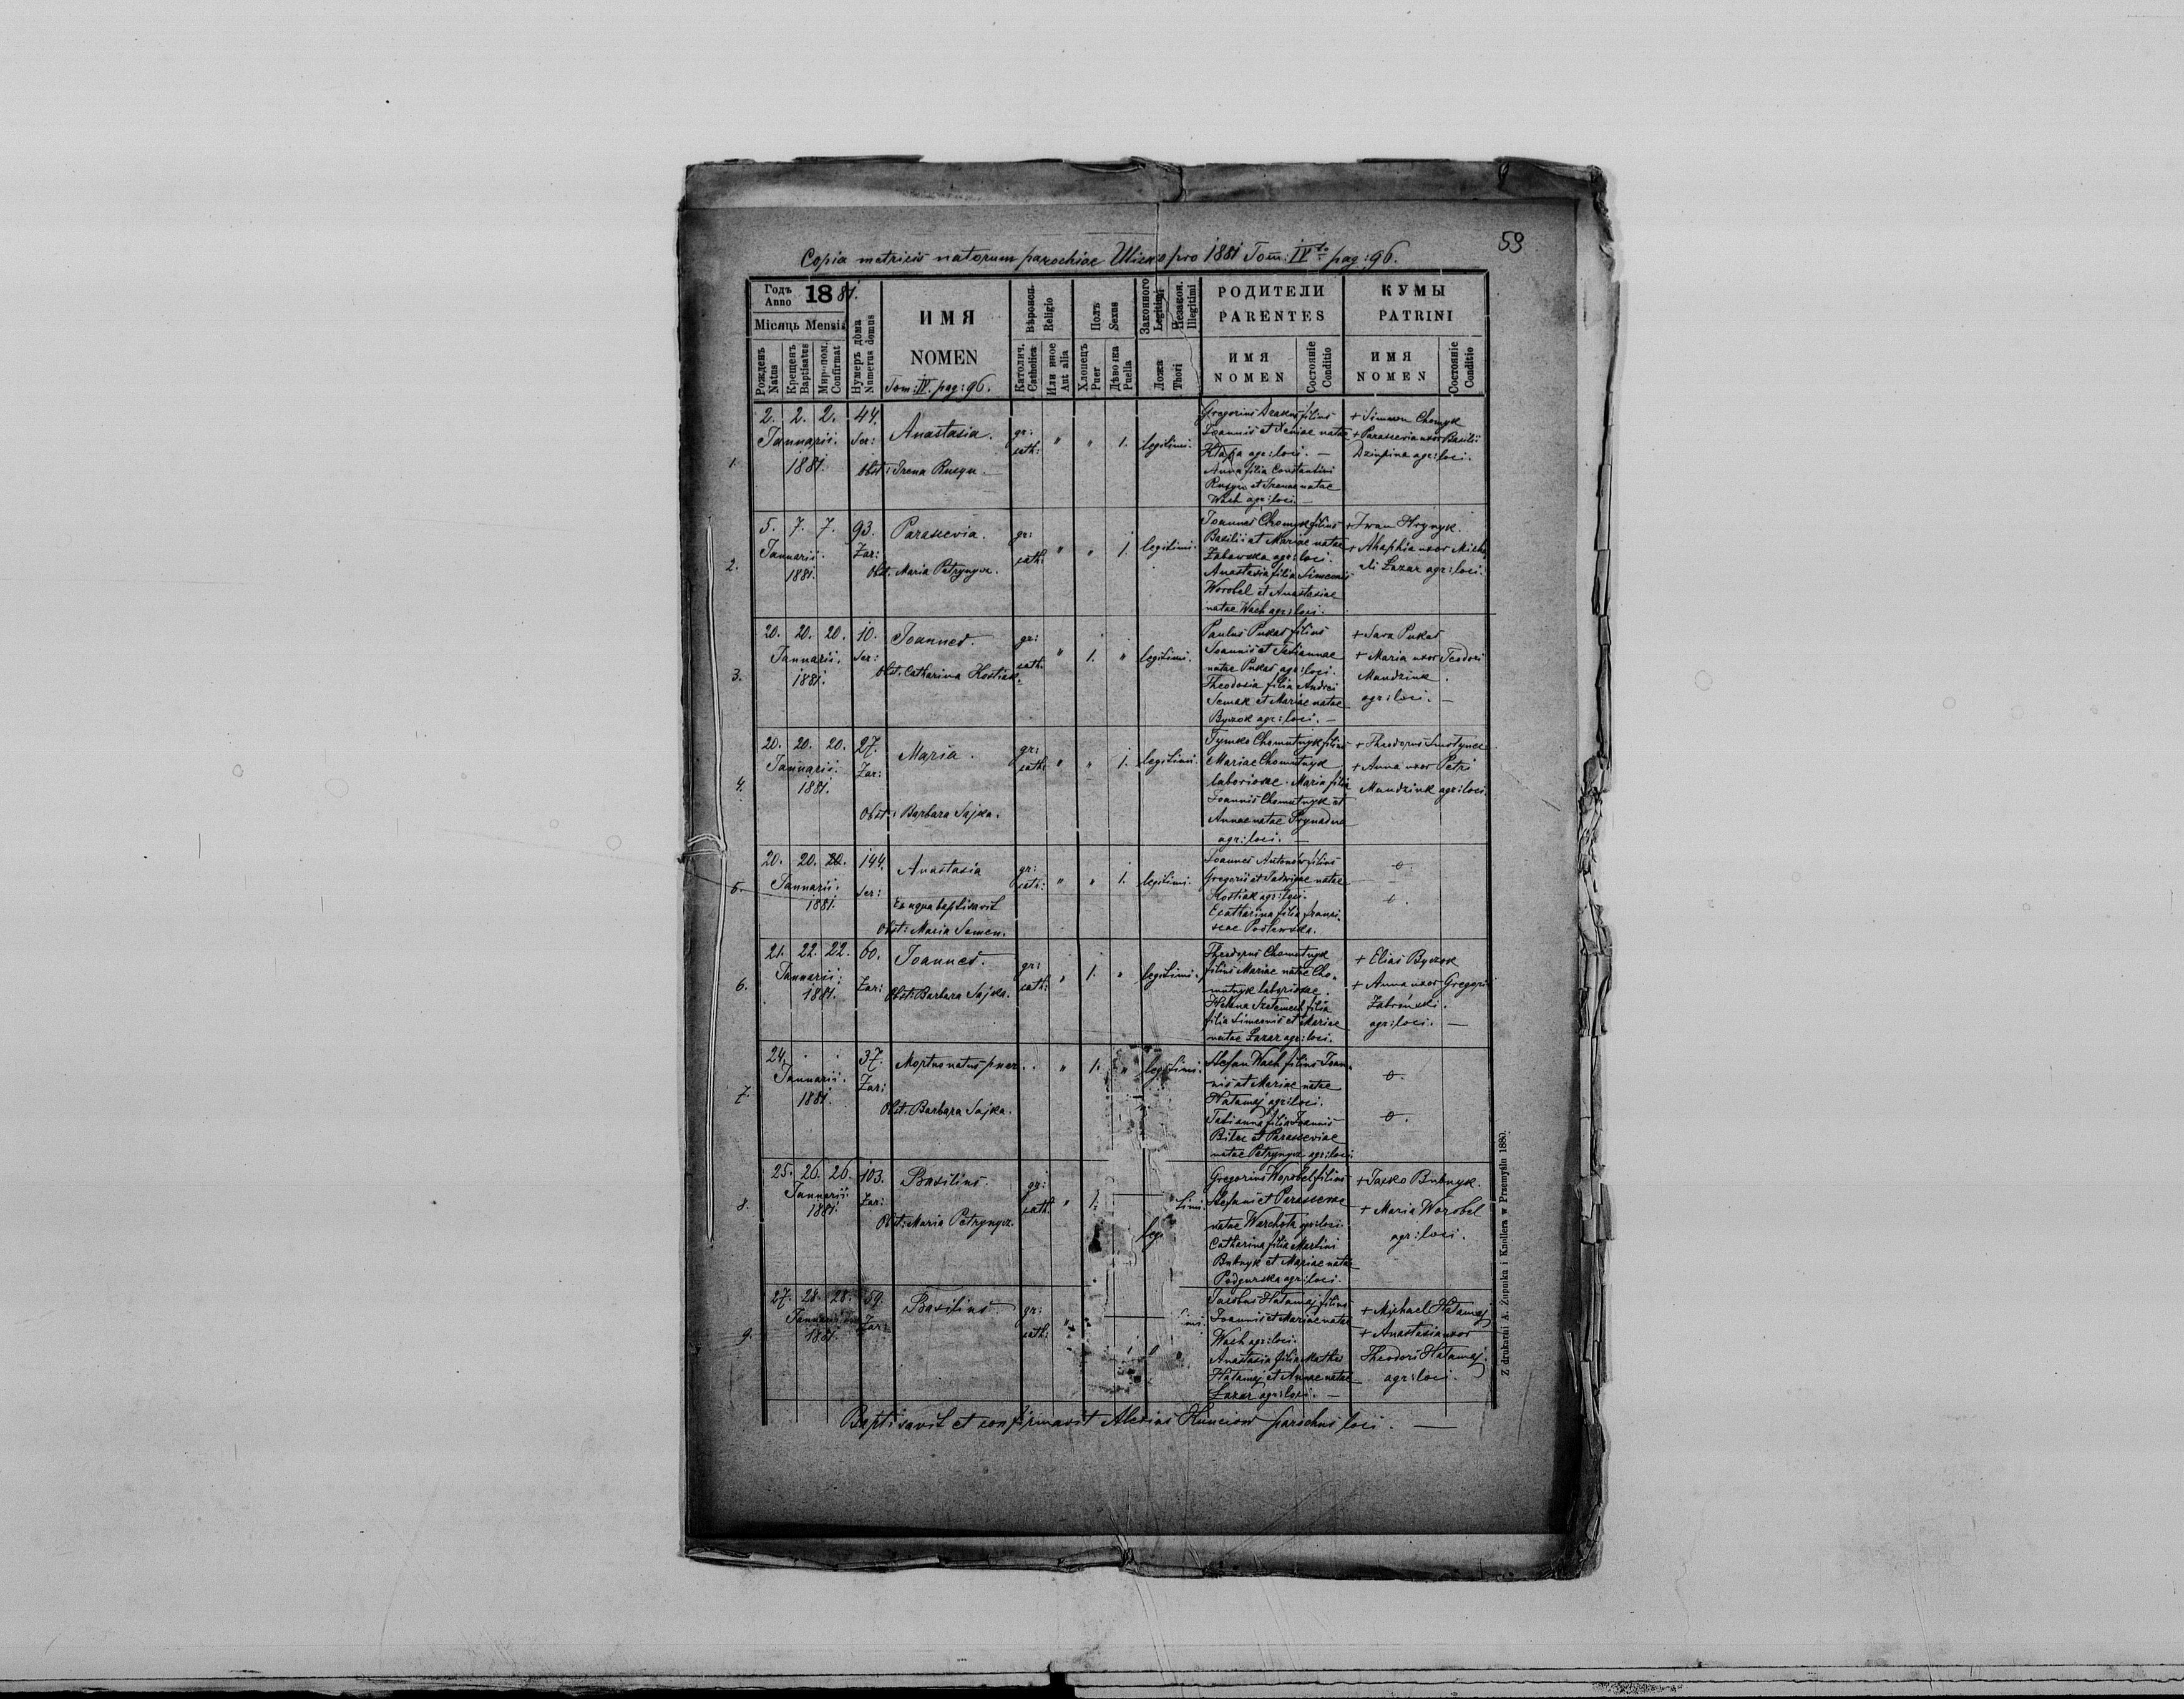 59
Copia metricis natorum parochiae Ulicko pro 1881 Tom: IV to pag: 96.
Годъ Anno 1881.
Місяць Mensis
Рожденъ Natus
Крещенъ Baptisatus
Миропом. Confirmat
Нумеръ дома Numerus domus
ИМЯ
NOMEN
Tom: IV. pag: 96.
Вѣроисп. Religio
Католич. Catholica
Или иное Aut alia
Полъ Sexus
Хлопець Puer
Дѣвочка Puella
Законного Legitimi
Незакон. Illegitimi
Ложа Thori
РОДИТЕЛИ
PARENTES
ИМЯ
NOMEN
Состояніе Conditio
КУМЫ
PATRINI
ИМЯ
NOMEN
Состояніе Conditio
1. 2. 2. 2. 44.
Januarii. Ser:
1881.
Anastasia.
Obst: Irena Rusyn —
gr: cath: " " 1. legitimi.
Gregorius filius
Joannis et Xeniae natae
agr: loci. —
Anna filia Constantini
Rusyn et Irenae natae
Wach agr: loci. —
+ Simeon Chomyk
+ Parascevia uxor Basilii
agr: loci.
2. 5. 7. 7. 93.
Januarii. Zar:
1881.
Parascevia.
Obst. Maria Petrynycz.
gr: cath: " " 1. legitimi.
Joannes Chomyk filius
Basilii et Mariae natae
Zabawska agr: loci.
Anastasia filia Simeonis
Worobel et Anastasiae
natae Wach agr: loci.
+ Iwan Hrynyk.
+ Ahaphia uxor Micha
eli Lazar agr: loci.
3. 20. 20. 20. 10.
Januarii. Ser:
1881.
Joannes.
Obst. Catharina Kostiak.
gr: cath: " 1. " legitimi.
Paulus Pukas filius
Joannis et Tatiannae
natae Pukas agr: loci.
Theodosia filia Andrei
Semak et Mariae natae
Byczok agr: loci. —
+ Sava Pukas
+ Maria uxor Teodori
Mandziuk.
agr: loci. —
4. 20. 20. 20. 27.
Januarii. Zar:
1881.
Maria.
Obst: Barbara Sajka.
gr: cath: " " 1. legitimi.
Tymko Chomutnyk filius
Mariae Chomutnyk
laboriosae. Maria filia
Joannis Chomutnyk et
Annae natae
agr: loci. —
+ Theodorus
+ Anna uxor Petri
Mandziuk agr: loci.
5. 20. 20. 20. 144.
Januarii. Ser:
1881.
Anastasia
Ex aqua baptisavit
Obst: Maria Semen.
gr: cath: " " 1. legitimi.
Joannes Antonów filius
Gregorii et Jadwigae natae
Kostiak agr: loci.
Ecatharina filia Franci-
scae
o.
o.
6. 21. 22. 22. 60.
Januarii. Zar:
1881.
Joannes.
Obst: Barbara Sajka.
gr: cath: " 1. " legitimi.
Theodorus Chomutnyk
filius Mariae natae Cho-
mutnyk laboriosae.
Helena filia
filia Simeonis et Mariae
natae Lazar agr: loci.
+ Elias Byczok
+ Anna uxor Gregorii
agr: loci. —
7. 24. . . 37.
Januarii. Zar:
1881.
Mortuonatus puer.
Obst. Barbara Sajka.
. " 1. " legitimi.
Stefan Wach filius Joan-
nis et Mariae natae
Hatamaj agr: loci.
Tatianna filia Joannis
et Parasceviae
natae Petrynycz agr: loci
o.
o.
8. 25. 26. 26. 103.
Januarii Zar:
1881.
Basilius.
Obst: Maria Petrynycz.
gr: cath: " 1. legitimi.
Gregorius Worobel filius
Stefani et Parascevae
natae agr: loci.
Catharina filia Martini
Bubnyk et Mariae natae
Podgurska agr: loci.
+ Jacko Bubnyk.
+ Maria Worobel
agr: loci.
9. 27. 28. 28. 59.
Januarii Zar:
1881.
Basilius.
gr: cath: "
Jacobus Hatamaj filius
Joannis et Mariae natae
Wach agr: loci.
Anastasia filia
Hatamaj et Annae natae
Lazar agr: loci. —
+ Michael Hatamaj
+ Anastasia uxor
Theodori Hatamaj.
agr: loci.
Baptisavit et confirmavit Alexius parochus loci. —
Z drukarni A. Żupnika i Knollera w Przemyślu 1880.